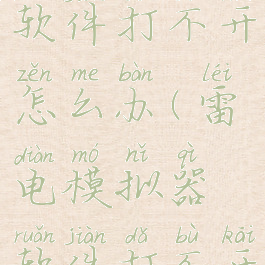 软件打不开
zěn me bàn léi
怎么办(雷
diàn mó nǐ qì
电模拟器
ruǎn jiàn dǎ bù kāi
软件打不开